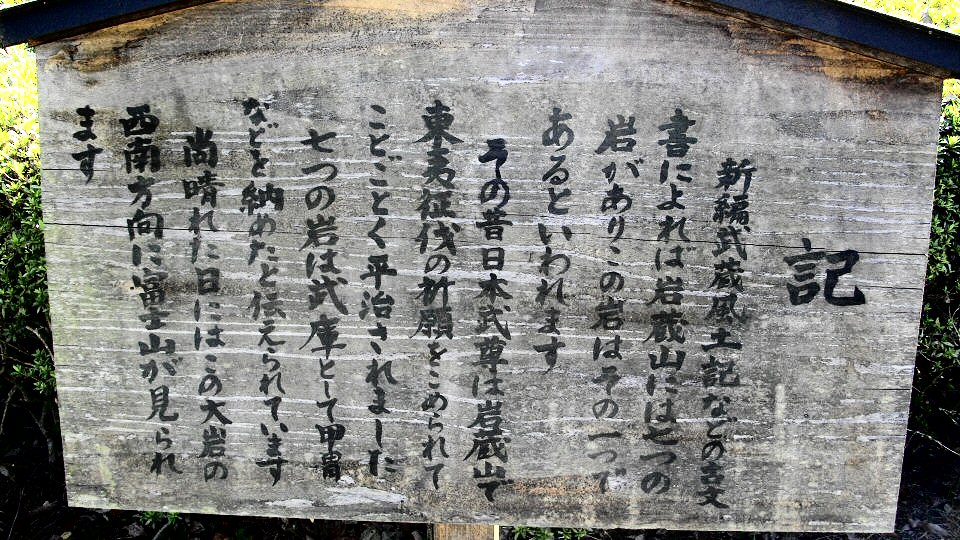 記
新編武蔵風土記などの古文
書によれば岩蔵山には七つの
岩がありこの岩はその一つで
あるといわれます
その昔日本武尊は岩蔵山で
東夷征伐の祈願をこめられて
ことごとく平治されました
七つの岩は武庫として甲冑
などを納めたと伝えられています
尚晴れた日にはこの大岩の
西南方向に富士山が見られ
ます